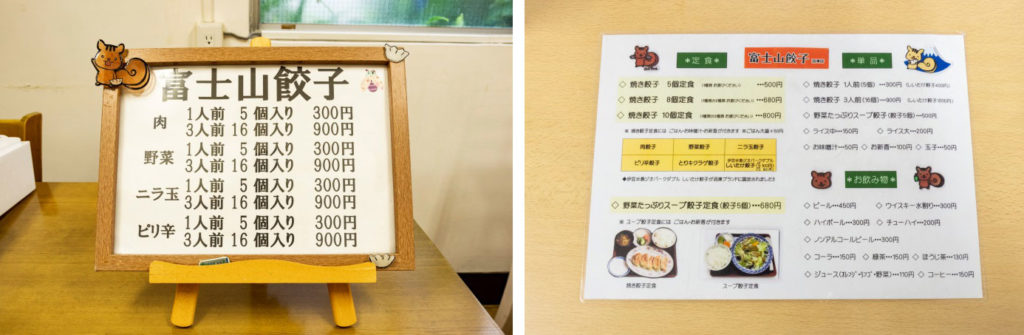 富士山餃子
肉 1人前 5個入り 300円
3人前 16個入り 900円
野菜 1人前 5個入り 300円
3人前 16個入り 900円
ニラ玉 1人前 5個入り 300円
3人前 16個入り 900円
ピリ辛 1人前 5個入り 300円
3人前 16個入り 900円
＊定食＊
富士山餃子
◇焼き餃子 5個定食 •••500円
◇焼き餃子 8個定食 •••680円
◇焼き餃子 10個定食 •••800円
※ 焼き餃子定食には ごはん・お味噌汁・お新香が付きます ※ごはん大盛＋50円
肉餃子 野菜餃子 ニラ玉餃子
ピリ辛餃子 とりキクラゲ餃子 しいたけ餃子
◇野菜たっぷりスープ餃子定食(餃子5個)•••680円
※ スープ餃子定食には ごはん・お新香が付きます
焼き餃子定食 スープ餃子定食
＊単品＊
◇焼き餃子 1人前(5個)•••300円
◇焼き餃子 3人前(16個)•••900円
◇野菜たっぷりスープ餃子(餃子5個)•••500円
◇ライス中•••150円 ◇ライス大•••200円
◇お味噌汁•••50円 ◇お新香•••100円 ◇玉子•••50円
＊お飲み物＊
◇ビール•••450円 ◇ウイスキー水割り•••300円
◇ハイボール•••300円 ◇チューハイ•••200円
◇ノンアルコールビール•••300円
◇コーラ•••150円 ◇緑茶•••150円 ◇ほうじ茶•••130円
◇ジュース(オレンジ・リンゴ・野菜)•••110円 ◇コーヒー•••150円